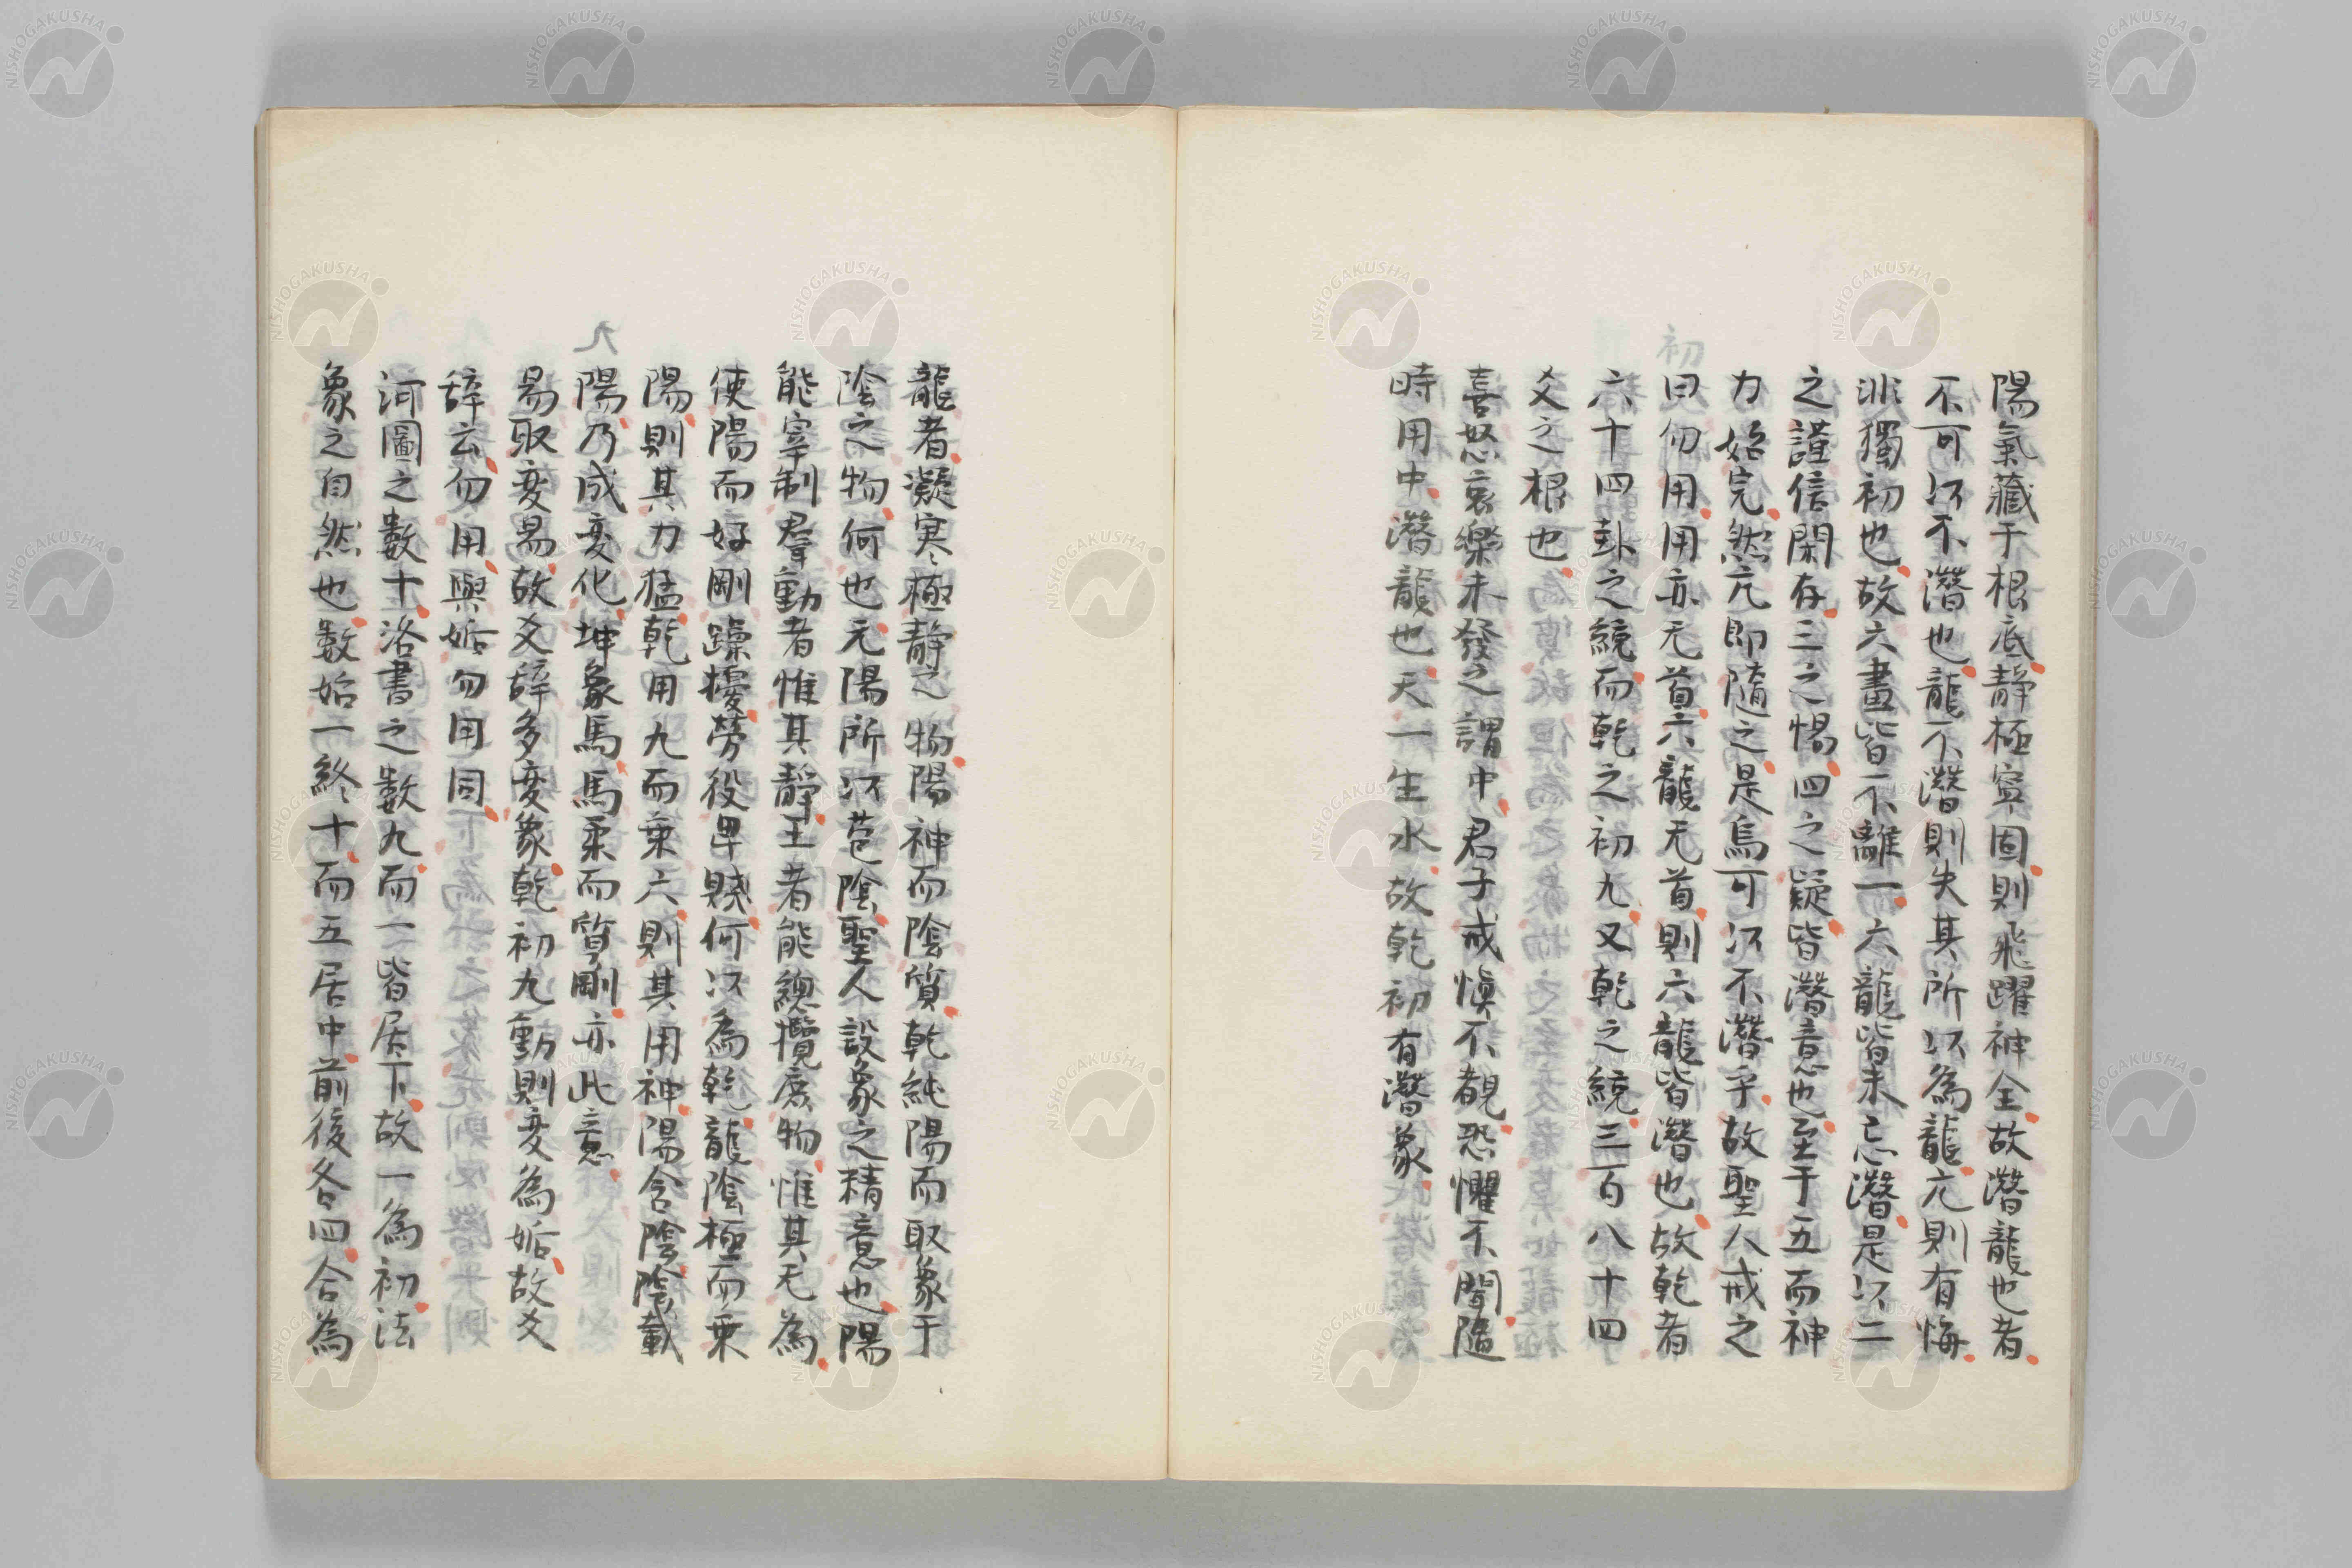 陽氣藏于根底静極寧固則飛躍神全故潛龍也者
不可以不潛也龍不潛則失其所以為龍亢則有悔
非獨初也故六畫皆不離一六龍皆未忘潛是以二
之謹信閑存三之惕四之疑皆潛意也至于五而神
力始完然亢即隨之是烏可以不潛乎故聖人戒之
初
曰勿用用亦无首六龍无首則六龍皆潛也故乾者
六十四卦之統而乾之初九又乾之統三百八十四
爻之根也
喜怒哀樂未發之謂中君子戒慎不覩恐懼不聞隨
時用中潛龍也天一生水故乾初有潛象
龍者凝寒極静之物陽神而陰質乾純陽而取象于
陰之物何也元陽所以苞陰聖人設象之精意也陽
能宰制羣動者惟其静王者能總攬庶物惟其无為
使陽而好剛躁擾勞役卑賤何以為乾龍陰極而乘
陽則其力猛乾用九而乘六則其用神陽含陰陰載
九
陽乃成变化坤象馬馬柔而質剛亦此意
易取变易故爻辞多变象乾初九動則变為姤故爻
辞云勿用與姤勿用同
河圖之數十洛書之數九而一皆居下故一為初法
象之自然也數始一終十而五居中前後各四合為
NISHOGAKUSHA